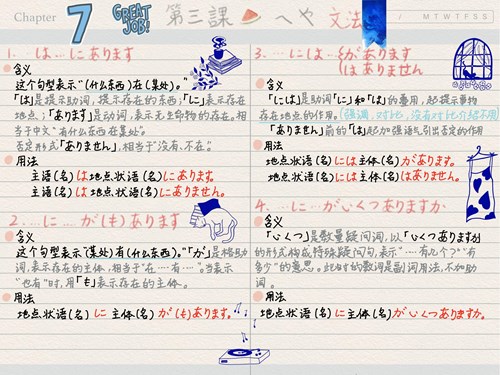 Chapter
7
GREAT JOB!
第三課 へや 文法
/ M T W T F S S
1. は…にあります
含义
这个句型表示“(什么东西)在(某处)。”
「は」是提示助词，提示存在的东西；「に」表示存在
地点；「あります」是动词，表示无生命物的存在。相
当于中文“有什么东西在某处”
否定形式「ありません」，相当于“没有、不在”。
用法
主语(名)は地点状语(名)にあります。
主语(名)は地点状语(名)にありません。
2. …に…が(も)あります
含义
这个句型表示“(某处)有(什么东西)。”「が」是格助
词，表示存在的主体，相当于“在…有…”。当表示
“也有”时，用「も」表示存在的主体。
用法
地点状语(名)に 主体(名)が(も)あります。
3. …には…があります
はありません
含义
「には」是助词「に」和「は」的重用，起提示事物
存在地点的作用。(强调、对比，没有对比介绍不用)
「ありません」前的「は」起加强语气引出否定的作用
用法
地点状语(名)には主体(名)があります。
地点状语(名)には主体(名)はありません。
4. …に…がいくつありますか
含义
「いくつ」是数量疑问词，以「いくつありますか」
的形式构成特殊疑问句，表示“…有几个？”“有
多少”的意思。此时的数词是副词用法，不加助
词。
用法
地点状语(名)に主体(名)がいくつありますか。